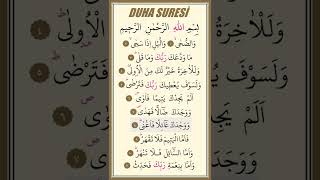 DUHA SURESİ
بِسْمِ اللّٰهِ الرَّحْمٰنِ الرَّحِيمِ
وَالضُّحٰى وَالَّيْلِ اِذَا سَجٰى
مَا وَدَّعَكَ رَبُّكَ وَمَا قَلٰى
وَلَلْاٰخِرَةُ خَيْرٌ لَكَ مِنَ الْاُولٰى
وَلَسَوْفَ يُعْطِيكَ رَبُّكَ فَتَرْضٰى
اَلَمْ يَجِدْكَ يَتِيمًا فَاٰوٰى
وَوَجَدَكَ ضَٓالًّا فَهَدٰى
وَوَجَدَكَ عَٓائِلًا فَاَغْنٰى
فَاَمَّا الْيَتِيمَ فَلَا تَقْهَرْ
وَاَمَّا السَّٓائِلَ فَلَا تَنْهَرْ
وَاَمَّا بِنِعْمَةِ رَبِّكَ فَحَدِّثْ